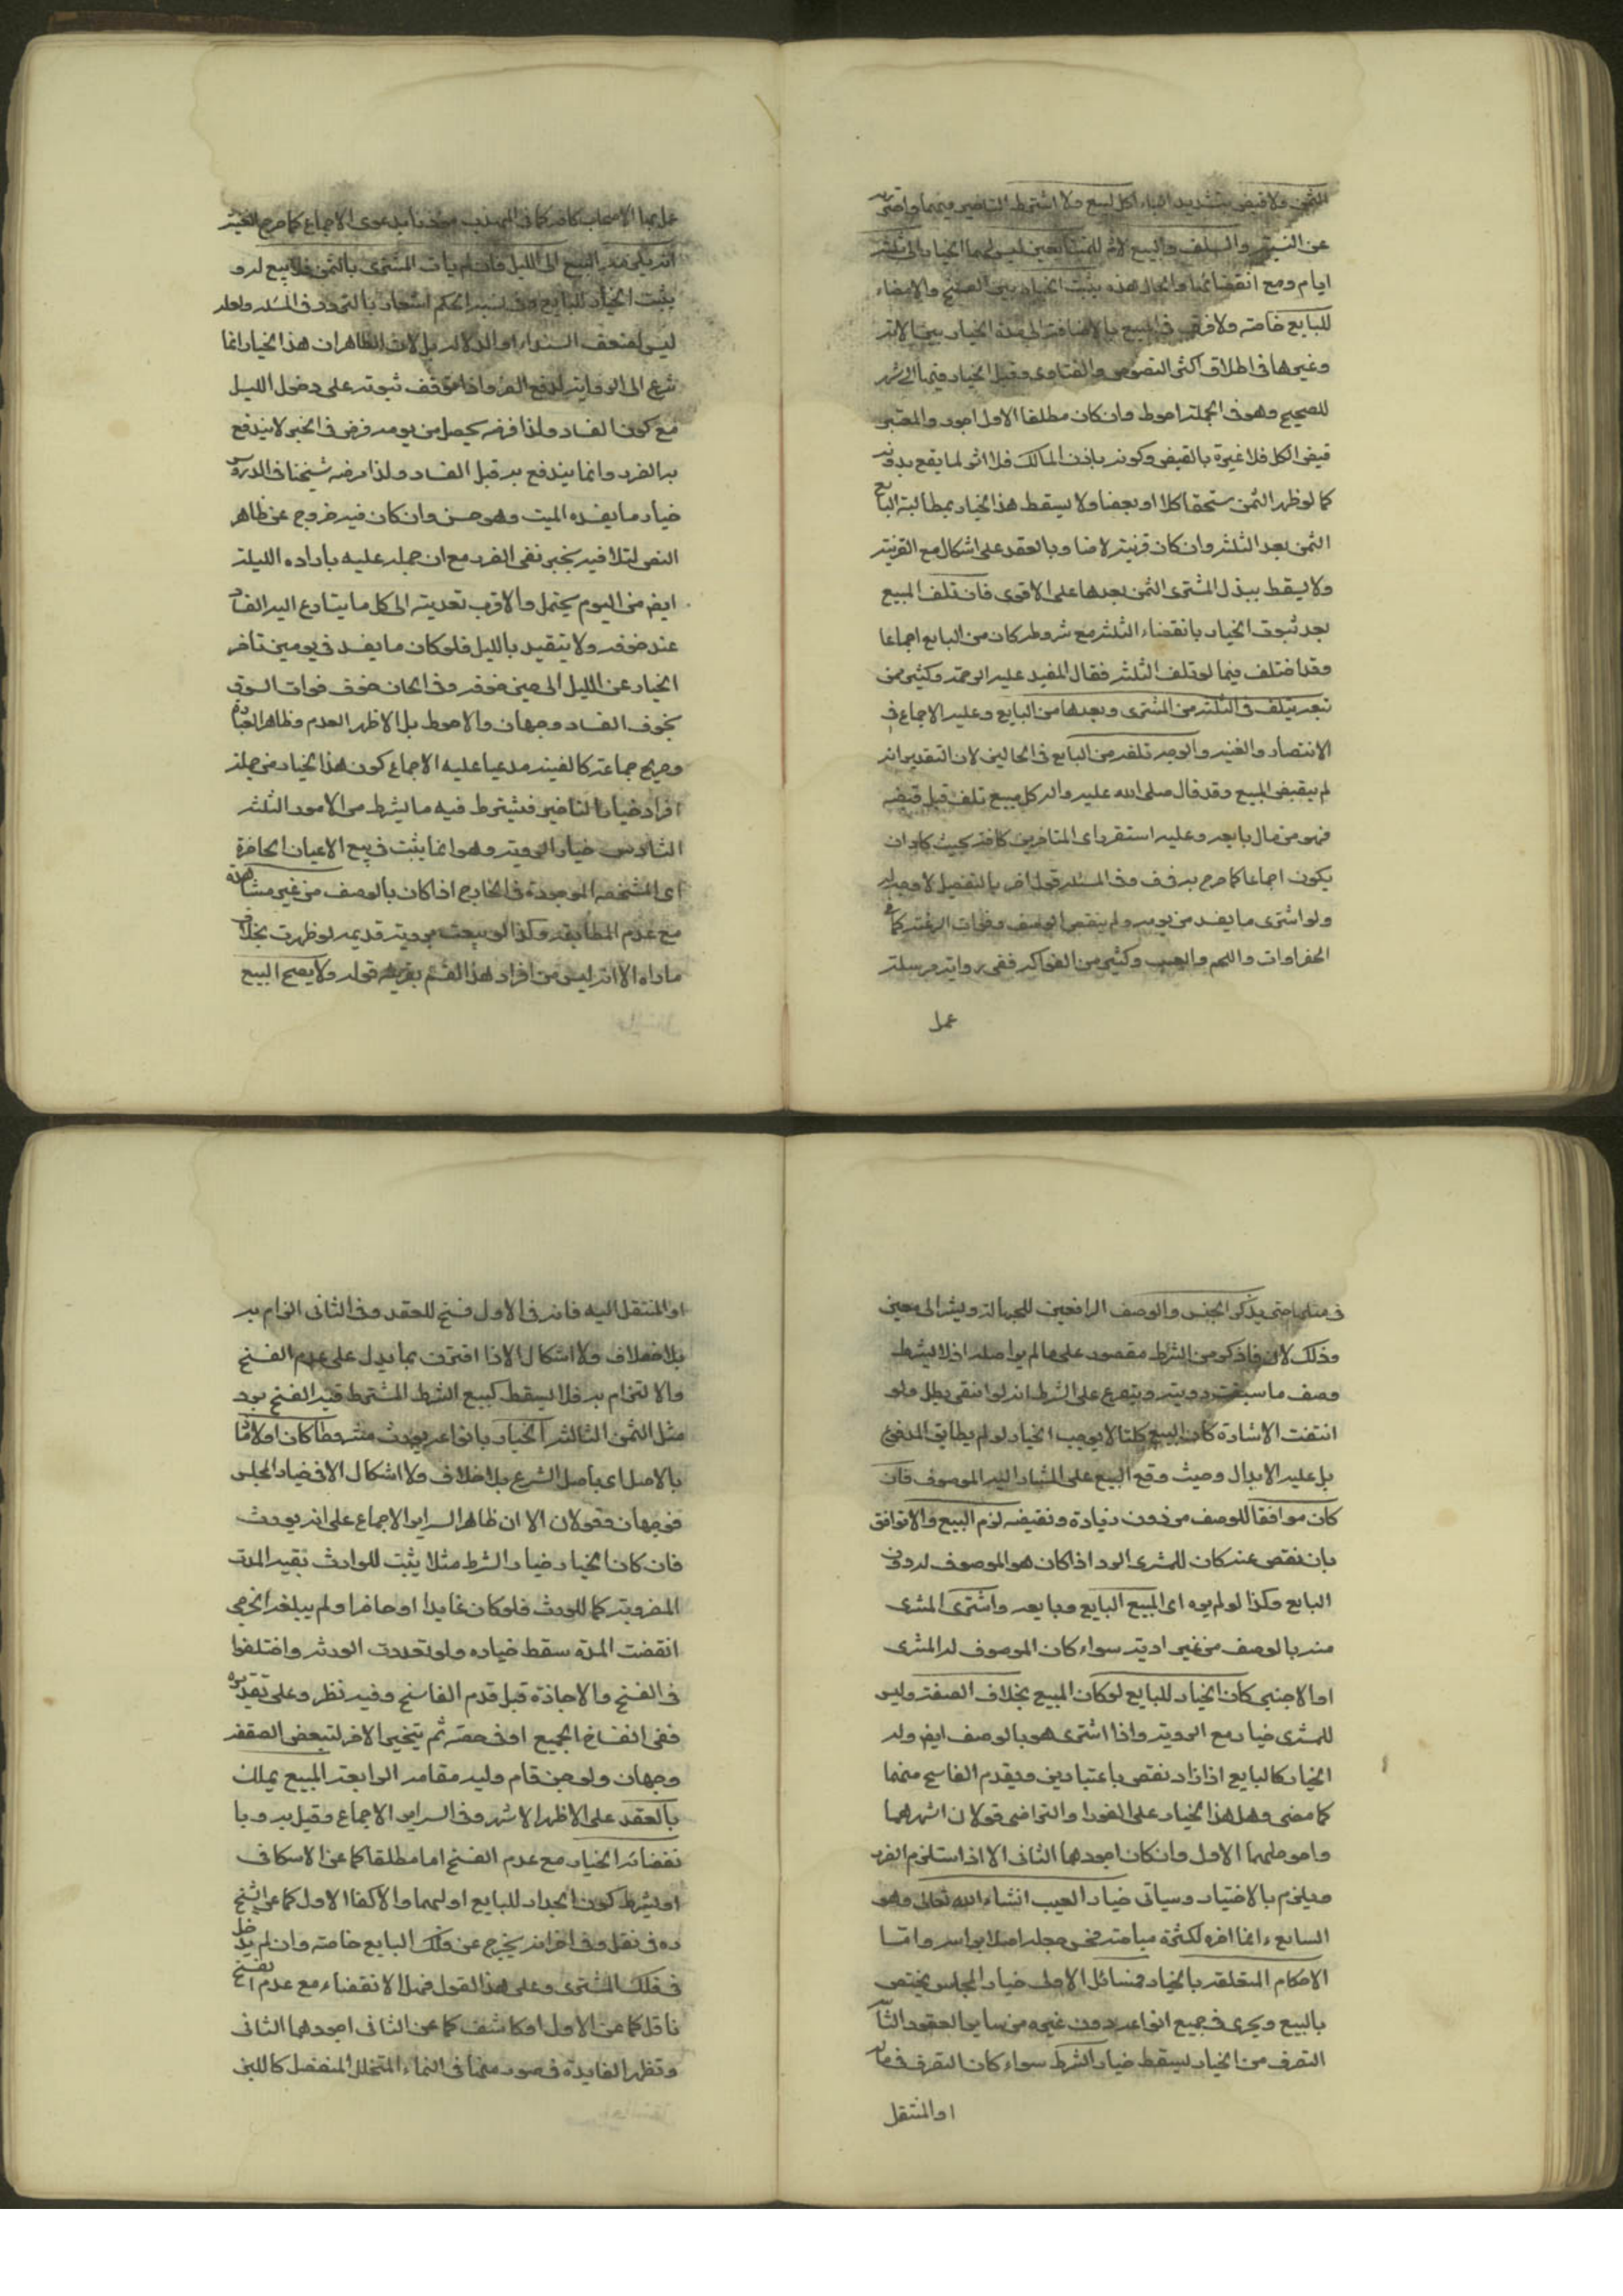 الثمن ولا قبض بتشديد الياء لكل لبيع ولا اشترط التاخير فيهما واحترز به
عن النسية والسلف والبيع لازم للمتبايعين ليس لهما الخيار الى ثلثة
ايام ومع انقضائها والحال هذه يثبت الخيار بين الفسخ والامضاء
للبايع خاصة ولا فرق في المبيع بالاضافة الى هذه الخيار بين الامة
وغيرها في اطلاق اكثر النصوص والفتاوى وقيل الخيار فيها الى شهر
للصحيح وهو في الجملة احوط وان كان مطلقا الاول اجود والمعتبر
قبض الكل فلا عبرة بالقبض وكونه باذن المالك فلا اثر لما يقع بدونه
كما لو ظهر الثمن مستحقا كلا او بعضا ولا يسقط هذا الخيار بمطالبة البايع
الثمن بعد الثلثة وان كان قرينة لا رضا وبالعقد على اشكال مع القرينة
ولا يسقط ببذل المشترى الثمن بعدها على الاقوى فان تلف المبيع
بعد ثبوت الخيار بانقضاء الثلثة مع شروطه كان من البايع اجماعا
وقد اختلف فيما لو تلف الثلثة فقال المفيد عليه الرحمة وكثير ممن
تبعه يتلف في الثلثة من المشترى وبعدها من البايع وعليه الاجماع في
الانتصار والغنية والوجه تلفه من البايع في الحالين لان التقدير انه
لم يقبض المبيع وقد قال صلى الله عليه واله كل مبيع تلف قبل قبضه
فهو من مال بايعه وعليه استقر راى المتاخرين كافة بحيث كاد ان
يكون اجماعا كما صرح به في ف وفي المسئلة قول اخر بالتفصيل لا وجه له
ولو اشترى ما يفسد من يومه ولم ينقص الوصف وفوات الرغبة كما في
الخضراوات واللحم والعنب وكثير من الفواكه ففي رواية مرسلة
عمل
عمل بها الاصحاب كافة كما في المهذب مؤذنا بدعوى الاجماع كما صرح الغنية
انه يكون مدة البيع الى الليل فان لم يات المشترى بالثمن فلا بيع له و
يثبت الخيار للبايع وفي نسبة الحكم اشعار بالتردد في المسئلة ولعله
ليس لضعف السند او الدلالة بل لان الظاهر ان هذا الخيار انما
شرع الى الوقاية لدفع الضرر واذا توقف ثبوته على دخول الليل
مع كون الفساد ولذا فرضه يحصل من يومه فرض في الخبر لا يندفع
به الضرر وانما يندفع به قبل الفساد ولذا فرضه شيخنا في الدروس
خيار ما يفسده المبيت وهو حسن وان كان فيه خروج عن ظاهر
النص لتلافيه بخبر نفى الضرر مع ان حمله عليه باراده الليلة
ايضا من اليوم يحتمل والاقرب تعديته الى كل ما يتسارع اليه الفساد
عند خوفه ولا يتقيد بالليل فلو كان ما يفسد في يومين تاخر
الخيار عن الليل الى حين خوفه وفي الحاق خوف فوات السوق
بخوف الفساد وجهان والاحوط بل الاظهر العدم وظاهر العبارة
وصريح جماعة كالغنية مدعيا عليه الاجماع كون هذا الخيار من جملة
افراد خيار التاخير فيشترط فيه ما يشترط من الامور الثلثة
السادس خيار الروية وهو انما يثبت في بيع الاعيان الحاضرة
اى المشخصة الموجودة في الخارج اذا كان بالوصف من غير مشاهدة
مع عدم المطابقة وكذا لو بيعت بروية قديمة لو ظهرت بخلاف
ما راه الا انه ليس من افراد هذا القسم بقرينة قوله ولا يصح البيع
في مثلها حتى يذكر الجنس والوصف الرافعين للجهالة ويشير الى معين
وذلك لان ما ذكر من الشرط مقصور على ما لم ير اصلا اذ لا يشترط
وصف ما سبقت رويته ويتفرع على الشرط انه لو انتفى بطل ولو
انتفت الاشارة كان المبيع كليا لا يوجب الخيار لو لم يطابق المدفوع
بل عليه الابدال وحيث وقع البيع على المشار اليه الموصوف فان
كان موافقا للوصف من دون زيادة ونقيضه لزم البيع والا توافق
بان نقص عنه كان للمشترى الرد اذا كان هو الموصوف له دون
البايع وكذا لو لم يره اى المبيع البايع وبايعه واشترى المشترى
منه بالوصف من غير روية سواء كان الموصوف له المشترى
او الاجنبى كان الخيار للبايع لو كان المبيع بخلاف الصفة وليس
للمشترى خيار مع الروية واذا اشترى هو بالوصف ايضا وله
الخيار كالبايع اذا زاد نقص باعتبارين ويقدم الفاسخ منهما
كما مضى وهل هذا الخيار على الفور او التراخى قولان اشهرهما
واحوطهما الاول وان كان اجودهما الثانى الا اذا استلزم الضرر
ويلزم بالاختيار وسياتى خيار العيب انشاء الله تعالى وهو
السابع وانما اخره لكثرة مباحثه فحسن جعله اصلا براسه واما
الاحكام المتعلقة بالخيار فمسائل الاولى خيار المجلس يختص
بالبيع ويجرى في جميع انواعه دون غيره من ساير العقود الثانية
التصرف من الخيار يسقط خيار الشرط سواء كان التصرف في ماله
او المنتقل
او المنتقل اليه فانه في الاول فسخ للعقد وفي الثانى التزام به
بلا خلاف ولا اشكال الا اذا اقترن بما يدل على عدم الفسخ
والالتزام به فلا يسقط كبيع الشرط المشترط فيه الفسخ برد
مثل الثمن الثالثة الخيار بانواعه يورث مشروطا كان او لازما
بالاصل اى باصل الشرع بلا خلاف ولا اشكال الا في خيار المجلس
فوجهان وقولان الا ان ظاهر السراير الاجماع على انه يورث
فان كان الخيار خيار الشرط مثلا يثبت للوارث بقية المدة
المضروبة كما للمورث فلو كان غايبا او حاضرا ولم يبلغه الخبر حتى
انقضت المدة سقط خياره ولو تعددت الورثة واختلفوا
في الفسخ والاجازة قيل قدم الفاسخ وفيه نظر وعلى تقديره
ففى انفساخ الجميع او في حصة ثم يتخير الاخر لتبعض الصفقة
وجهان ولو جن قام وليه مقامه الرابعة المبيع يملك
بالعقد على الاظهر الاشهر وفي السراير الاجماع وقيل به وبا
نقضاء الخيار مع عدم الفسخ اما مطلقا كما عن الاسكافى
او بشرط كون الخيار للبايع او لهما والا كفى الاول كما عن الشيخ
ره في نقل وفي اخر انه يخرج عن ملك البايع خاصة وان لم يدخل
في ملك المشترى وعلى هذا القول فهل الانقضاء مع عدم الفسخ
ناقل كما عن الاول او كاشف كما عن الثانى اجودهما الثانى
وتظهر الفايدة في صور منها في النماء المتخلل المنفصل كاللبن